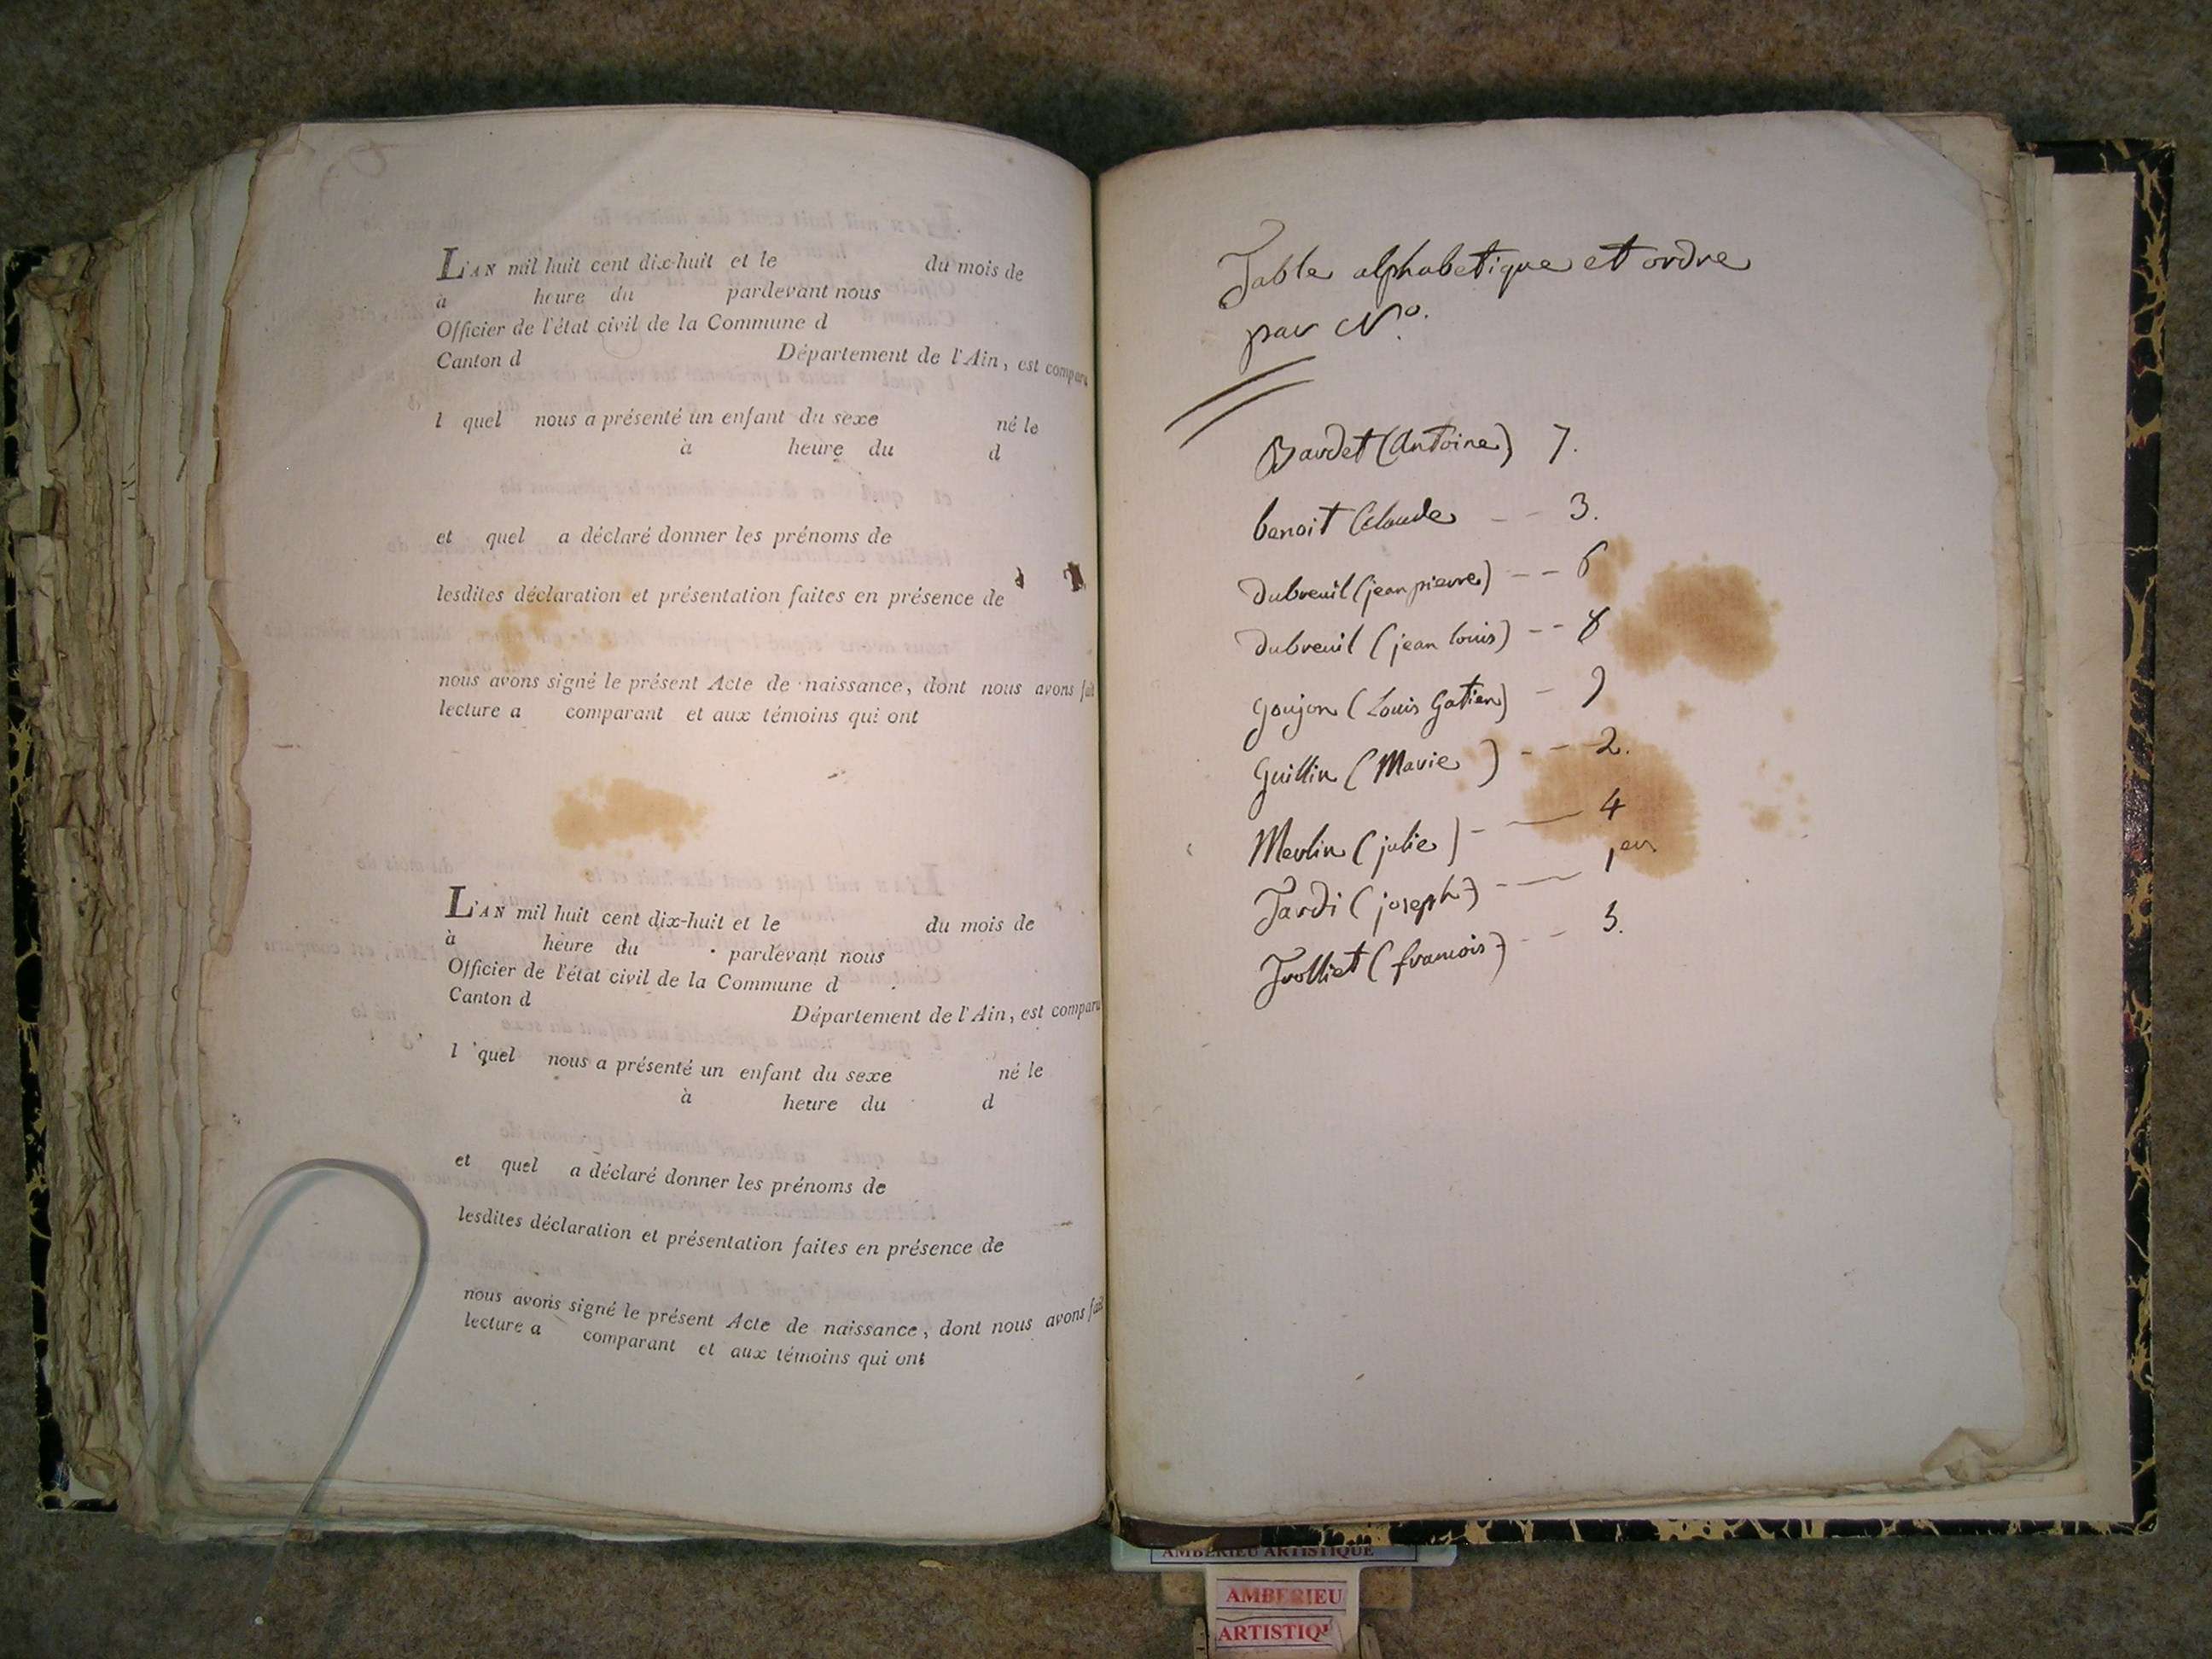 L'AN mil huit cent dix-huit et le du mois de
à heure du pardevant nous
Officier de l'état civil de la Commune d
Canton d Département de l'Ain, est comparu
l quel nous a présenté un enfant du sexe né le
à heure du d
et quel a déclaré donner les prénoms de
lesdites déclaration et présentation faites en présence de
nous avons signé le présent Acte de naissance, dont nous avons fait
lecture a comparant et aux témoins qui ont
L'AN mil huit cent dix-huit et le du mois de
à heure du pardevant nous
Officier de l'état civil de la Commune d
Canton d Département de l'Ain, est comparu
l quel nous a présenté un enfant du sexe né le
à heure du d
et quel a déclaré donner les prénoms de
lesdites déclaration et présentation faites en présence de
nous avons signé le présent Acte de naissance, dont nous avons fait
lecture a comparant et aux témoins qui ont
Table alphabetique et ordre
par No.
Bardet (Antoine) 7.
benoit Claude -- 3.
Dubreuil (jean pierre) -- 6
Dubreuil (jean louis) -- 8
Goujon (Louis Gatien) - 9
Guillin (Marie) -- 2.
Merlin (julie) -- 4
Tardi (joseph) -- 1er
Trolliet (francois) -- 5.
AMBERIEU ARTISTIQUE
AMBERIEU
ARTISTIQU